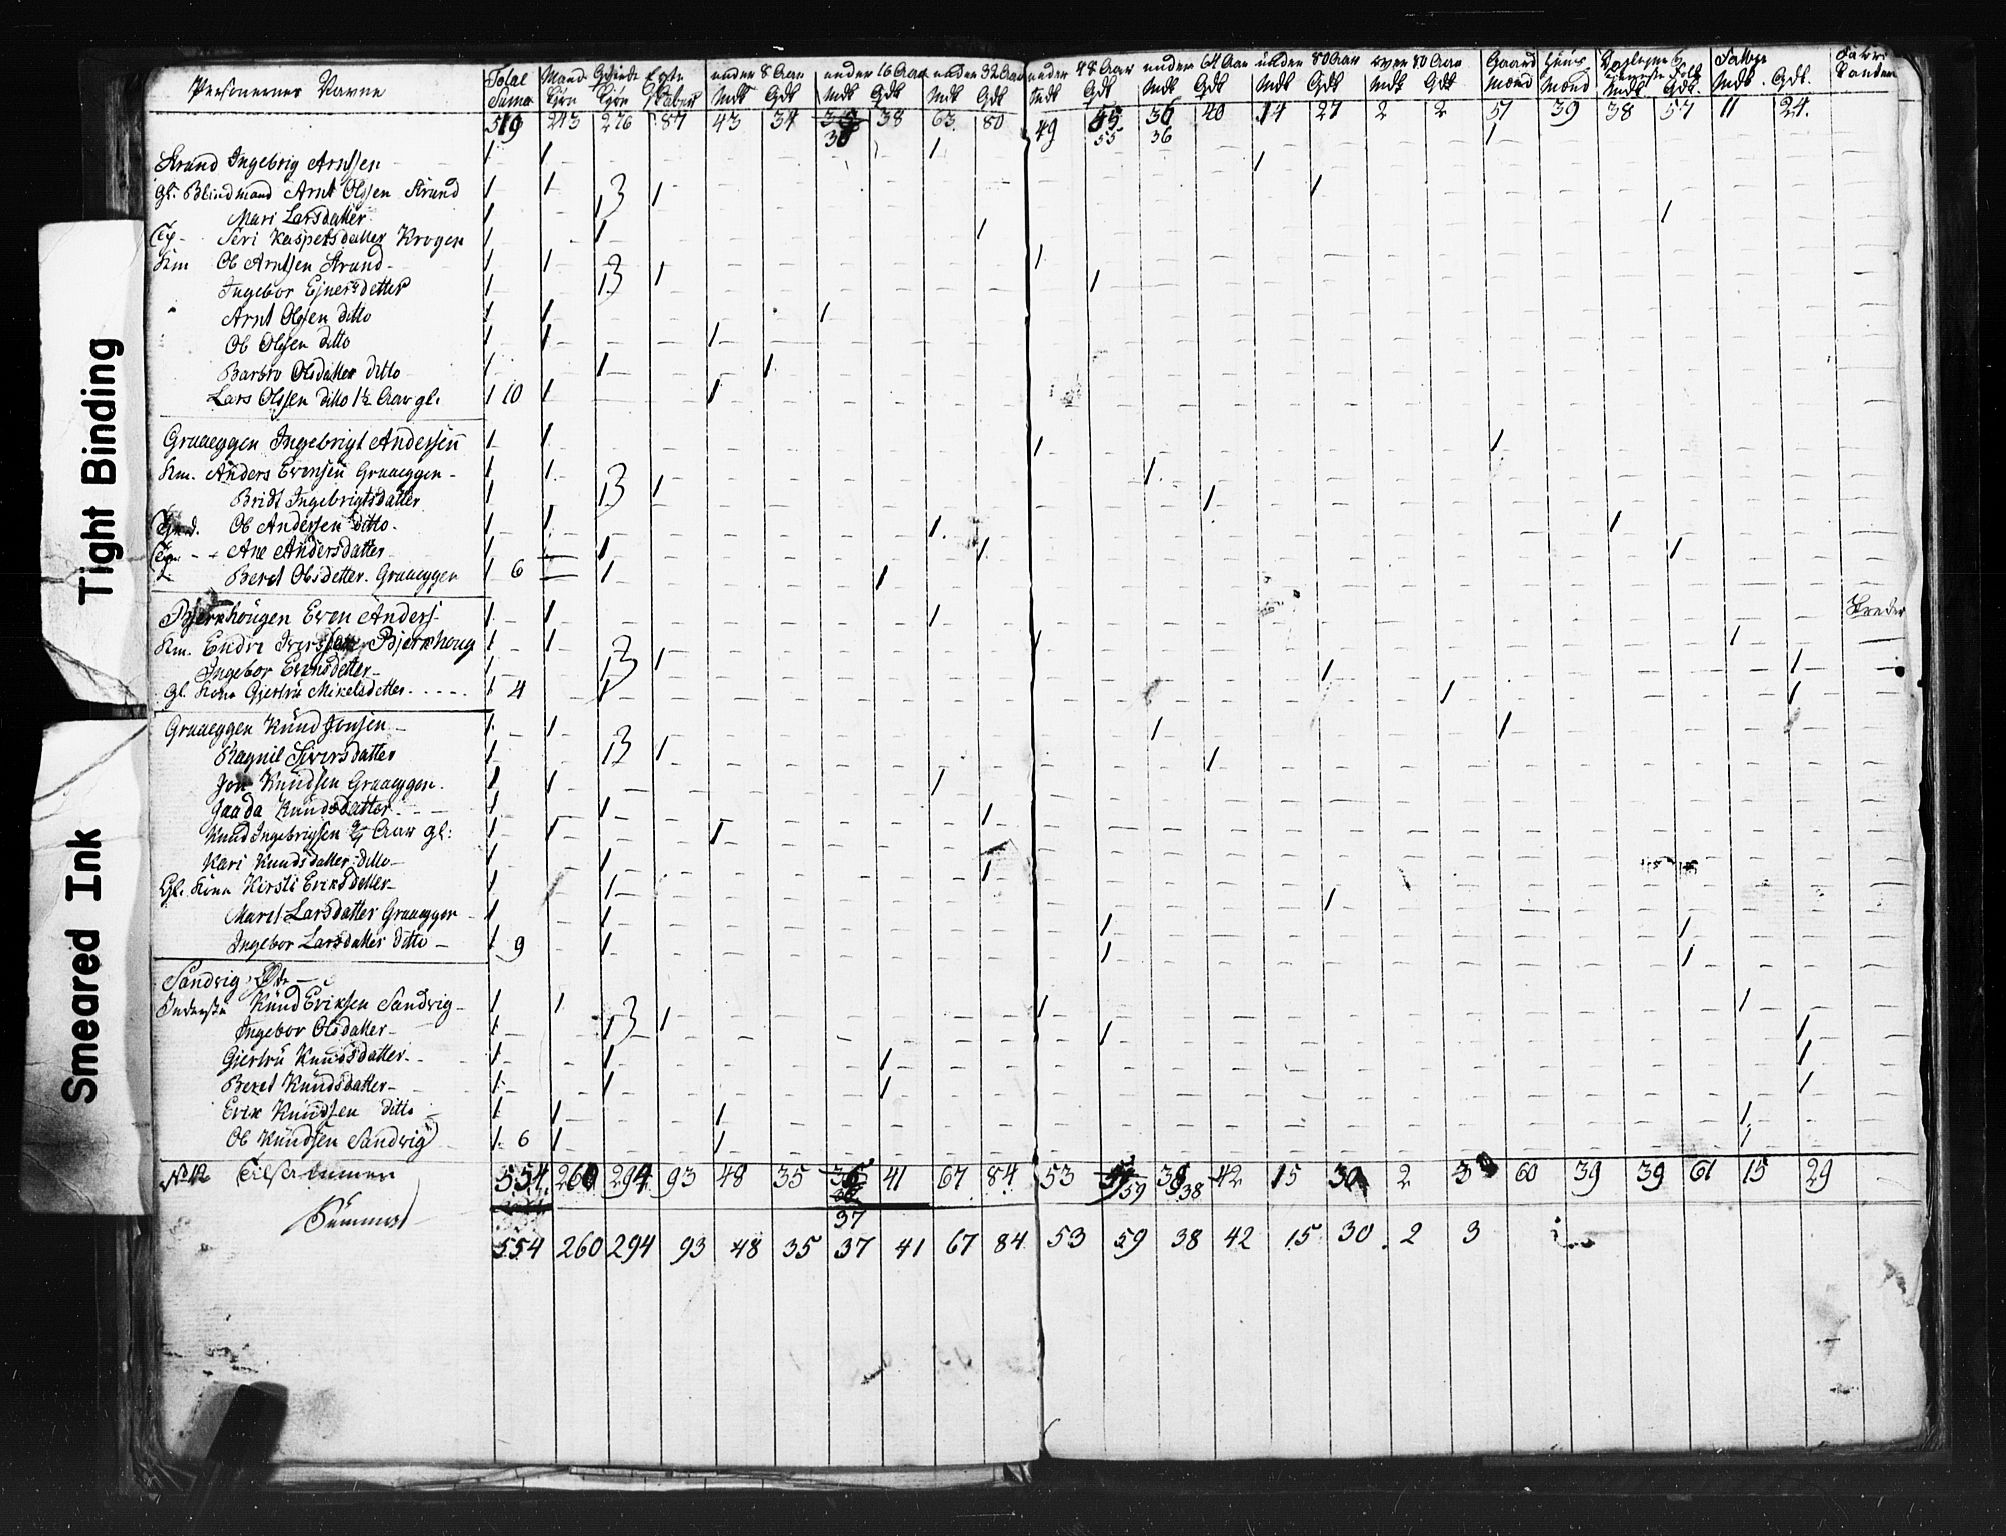 Tight Binding
Smeared Ink
Personernes Navne Total Suma Mand Kjøn Qvinde Kjøn Egte skaber under 8 Aar Mdk Qdk under 16 Aar Mdk Qdk under 32 Aar Mdk Qdk under 48 Aar Mdk Qdk under 64 Aar Mdk Qdk under 80 Aar Mdk Qdk over 80 Aar Mdk Qdk Gaard Mænd Huus Mænd Mdk. Qdk. Fattige Mdk. Qdk.
519 243 276 87 43 34 38 63 80 49 55 36 40 14 27 2 2 51 39 38 57 11 24
Strand Ingebrig Arntsen 1 1 1 1
gl. Blindmand Arnt Olsen Strand 1 1 1 1
Mari Larsdatter 1 1 1
Seri Kaspersdatter Krogen 1 1 1 1
Km Ole Arntsen Strand 1 1 1 1
Ingebor Ejnersdetter 1 1 1
Arnt Olsen ditto 1 1 1
Ole Olsen ditto 1 1 1
Barbro Olsdatter ditto 1 1 1
Lars Olsen ditto 1½ Aar gl. 1 10 1 1
Graaeggen Ingebrigt Andersen 1 1 1 1
Km. Anders Evensen Graaeggen 1 1 1 1
Bridt Ingebrigtsdatter 1 1 1
Ole Andersen ditto 1 1 1 1
Ane Andersdatter 1 1 1 1
Beret Olsdetter Graaeggen 1 6 1 1
Bjerkhougen Even Anders. 1 1 1
Km. Endre Bjerkhoug 1 1 1 1 1
Ingebor Evensdetter 1 1 1 1
gl. Kona Gjertru Mikelsdetter 1 4 1 1 1
Graaeggen Knud Jonsen 1 1 1 1
Ragnil Siversdatter 1 1 1 1
Jon Knudsen Graaeggen. 1 1 1
Knudsdatter 1 1 1
Knud Ingebrigsen Aar gl: 1 1 1
Kari Knudsdatter ditto 1 1 1
Gl. Kona Kirsti Eriksdetter 1 1 1
Marit Larsdatter Graaeggen 1 1 1 1
Ingebor Larsdatter ditto 1 9 1 1 1
Sandvig
Inderste Knud Eriksen Sandvig 1 1 1 1 1
Ingebor Olsdatter 1 1 1 1
Gjertru Knudsdatter 1 1 1 1
Beret Knudsdatter 1 1 1 1
Erik Knudsen ditto 1 1 1 1
Ole Knudsen Sandvig 1 6 1 1 1
Tilsammen 554 260 294 93 48 35 37 41 67 84 53 59 38 42 15 30 2 3 60 39 39 61 15 29
Summa 554 260 294 93 48 35 37 41 67 84 53 59 38 42 15 30 2 3